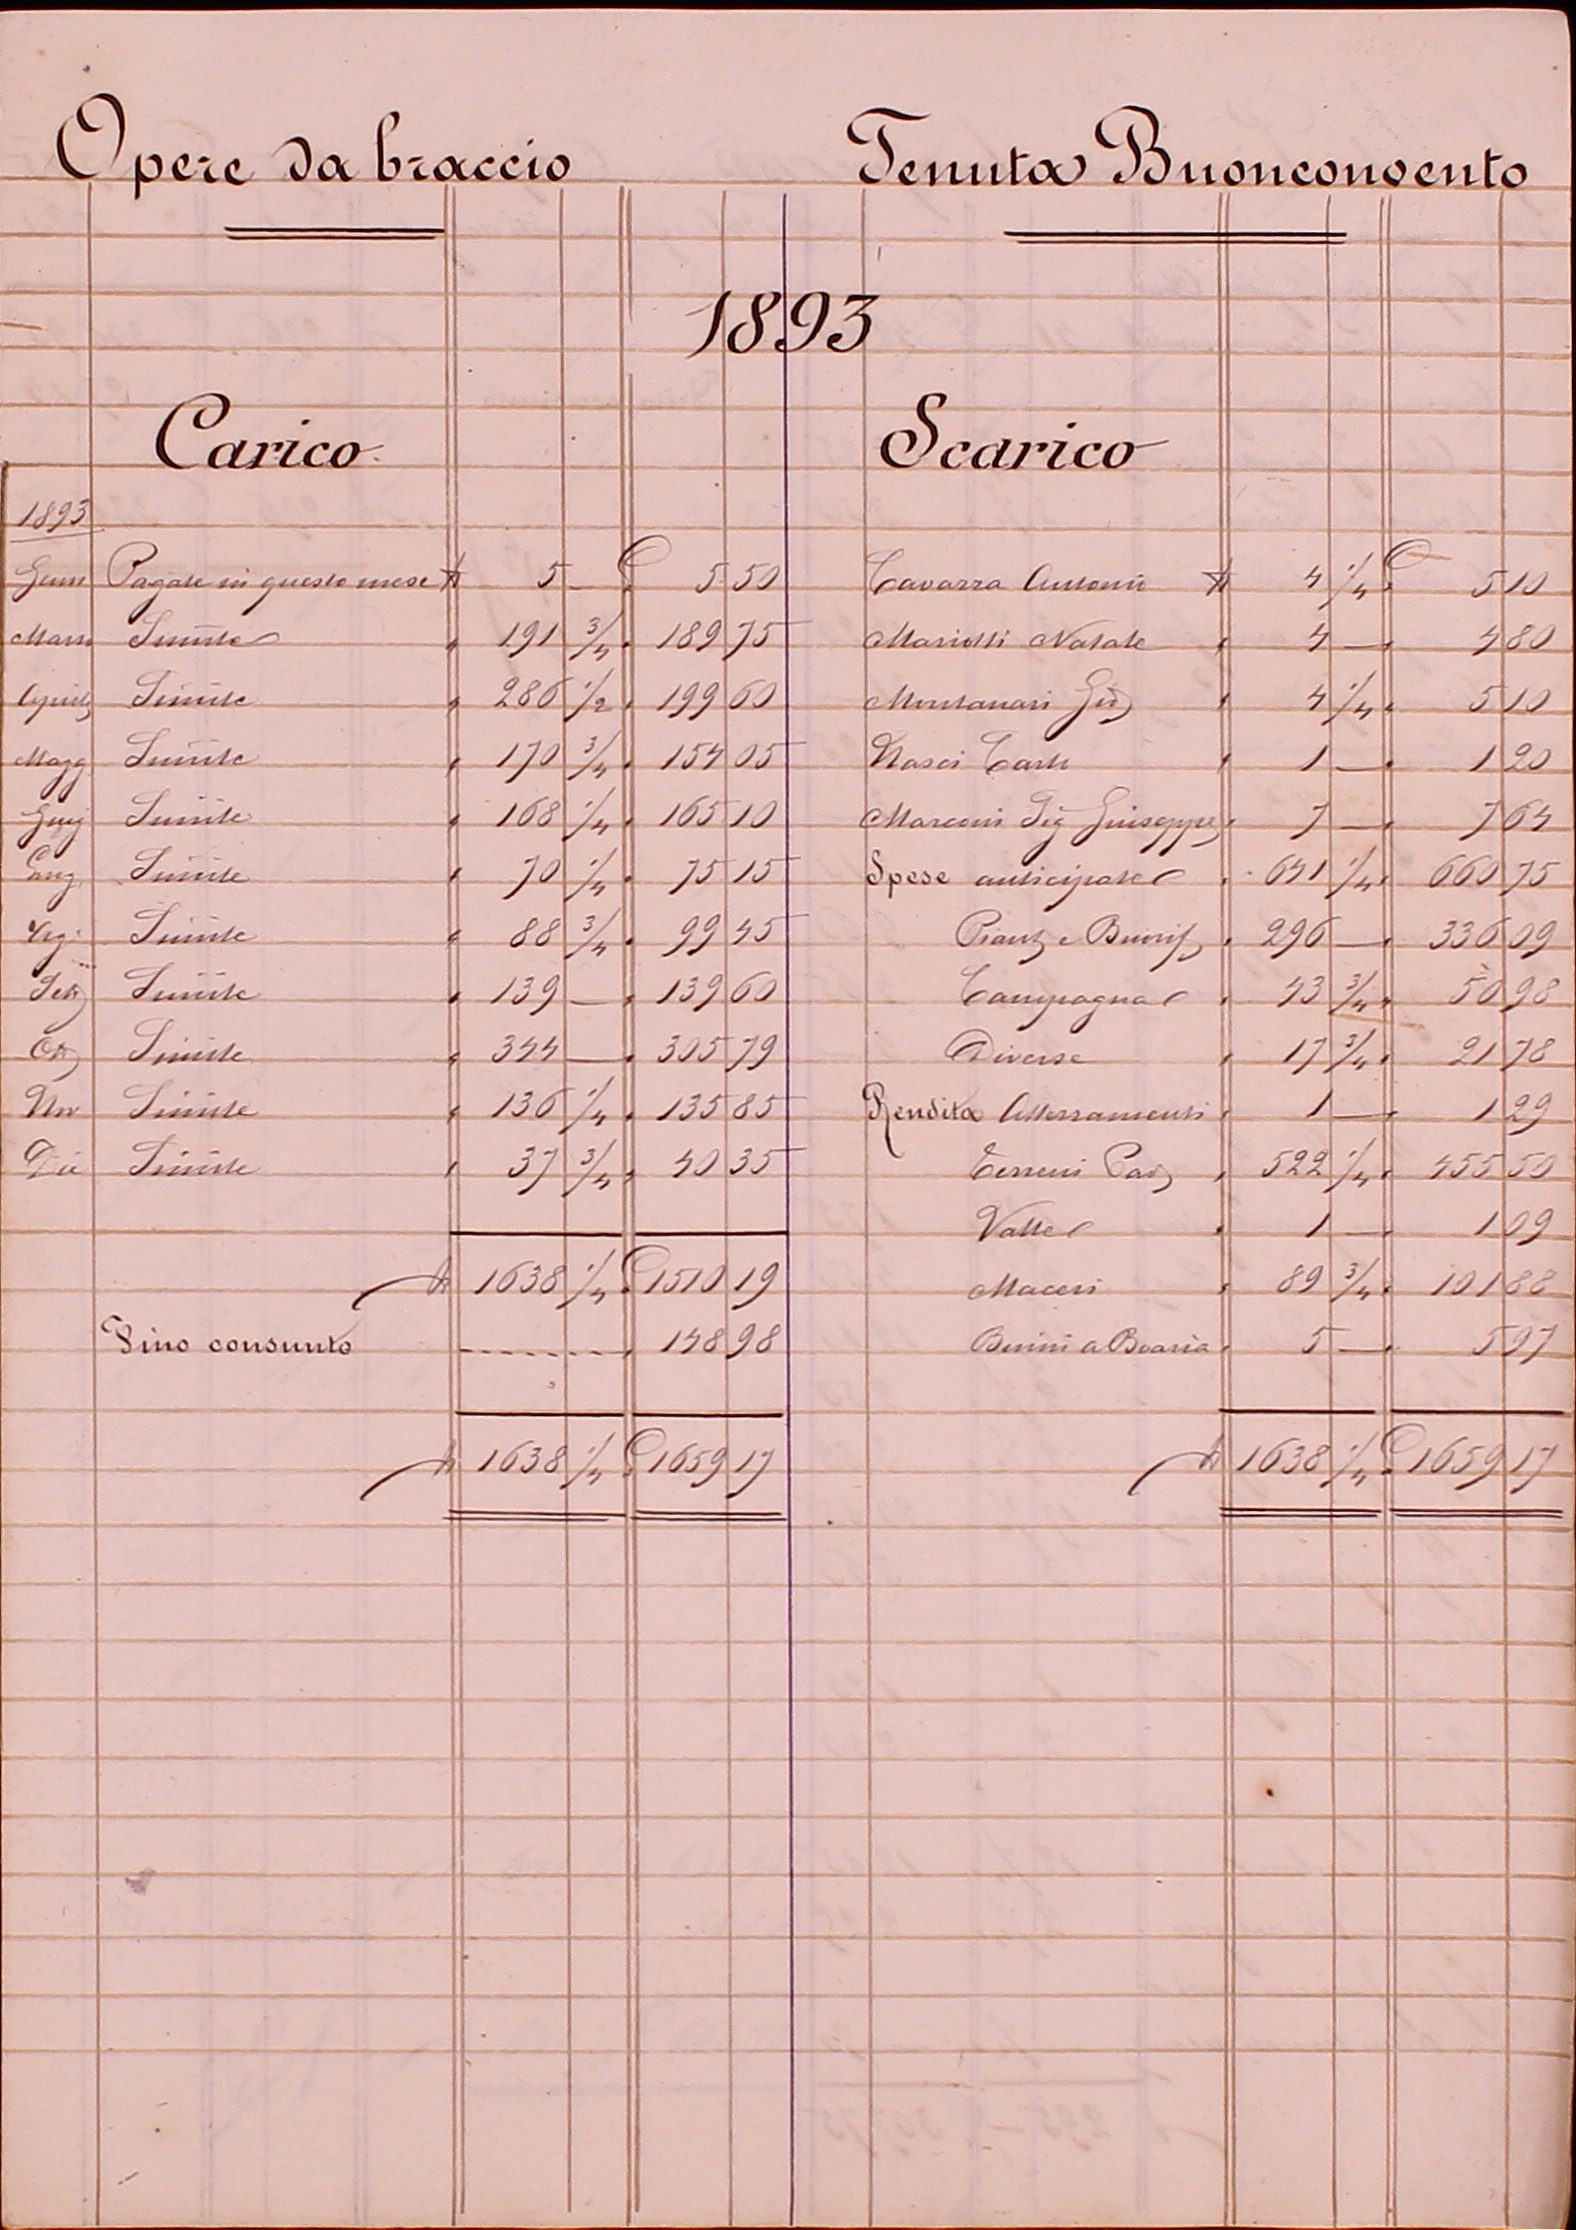 Opere da braccio
Tenuta Buonconvento
1893
Carico
Scarico
1893
Genn Pagate in questo mese N 5 — £ 5 50
Marzo Simile " 191 3/4 " 189 75
Aprile Simile " 286 1/2 " 199 60
Magg Simile " 170 3/4 " 154 05
Giug Simile " 168 1/4 " 165 10
Lug. Simile " 70 1/4 " 75 15
Ag. Simile " 88 3/4 " 99 45
Sett Simile " 139 — " 139 60
Ott Simile " 344 — " 305 79
Nov Simile " 136 1/4 " 135 85
Dic Simile " 37 3/4 " 40 35
N 1638 1/4 £ 1510 19
Vino consunto " 148 98
N 1638 1/4 £ 1659 17
Cavazza Antonio N 4 1/4 £ 5 10
Mariotti Natale " 4 — " 4 80
Montanari Gio " 4 1/4 " 5 10
Nasci Carlo " 1 — " 1 20
Marconi Sig Giuseppe " 7 — " 7 64
Spese anticipate " 641 1/4 " 660 75
Piant e Bonif " 296 — " 336 09
Campagna " 43 3/4 " 50 98
Diverse " 17 3/4 " 21 78
Rendita Atterramenti " 1 — " 1 29
Terreni Par " 522 1/4 " 455 50
Valle " 1 — " 1 09
Maceri " 89 3/4 " 101 88
Buini a Boaria " 5 — " 5 97
N 1638 1/4 £ 1659 17